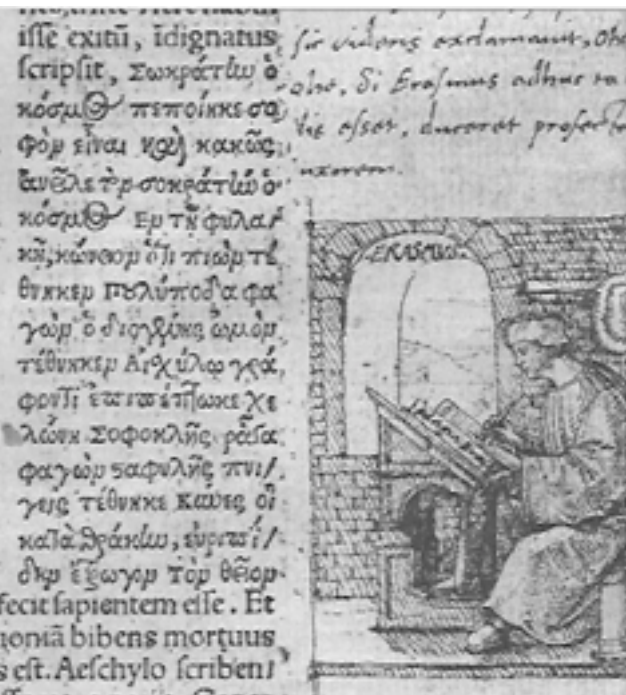 isse exitū, īdignatus
scripsit, Σωκράτην ὁ
κόσμος πεποίηκε σο
φὸν εἶναι καὶ κακῶς
ἀνεῖλε τὸν σοκράτην ὁ
κόσμος Ἐν τῇ φυλα/
κῇ, κώνειον ὅτι πιὼν τέ
θνηκεν Πολύποδα φα
γὼν ὁ διογένης ὠμὸν
τέθνηκεν Αἰσχύλῳ γρά,
φοντι ἐπιπέπτωκε χε
λώνη Σοφοκλῆς ῥᾶγα
φαγὼν σταφυλῆς πνι/
γεὶς τέθνηκε Κύνες οἱ
κατὰ Θράκην, εὐριπί/
δην ἔτρωγον Τὸν θεῖον
fecit sapientem esse. Et
ioniā bibens mortuus
s est. Aeschylo scriben/
sic videns exclamauit, Ohe
ohe, Si Erasmus adhuc ta
lis esset, duceret profecto
uxorem.
ERASMUS.